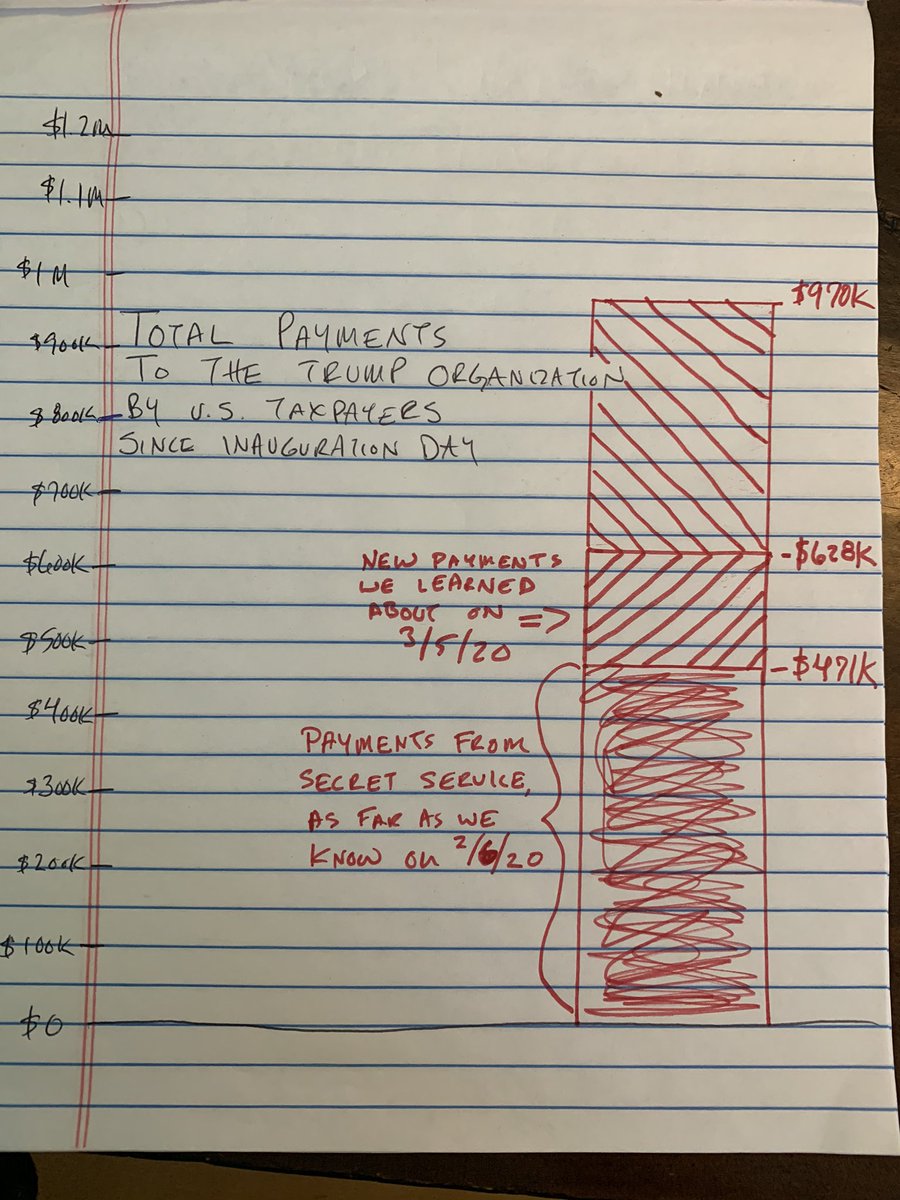 $1.2M
$1.1M
$1M
$970K
$900K
TOTAL PAYMENTS
TO THE TRUMP ORGANIZATION
$800K
BY U.S. TAXPAYERS
SINCE INAUGURATION DAY
$700K
$600K
NEW PAYMENTS
WE LEARNED
ABOUT ON =>
3/5/20
-$628K
$500K
-$471K
$400K
PAYMENTS FROM
SECRET SERVICE,
AS FAR AS WE
KNOW ON 2/6/20
$300K
$200K
$100K
$0